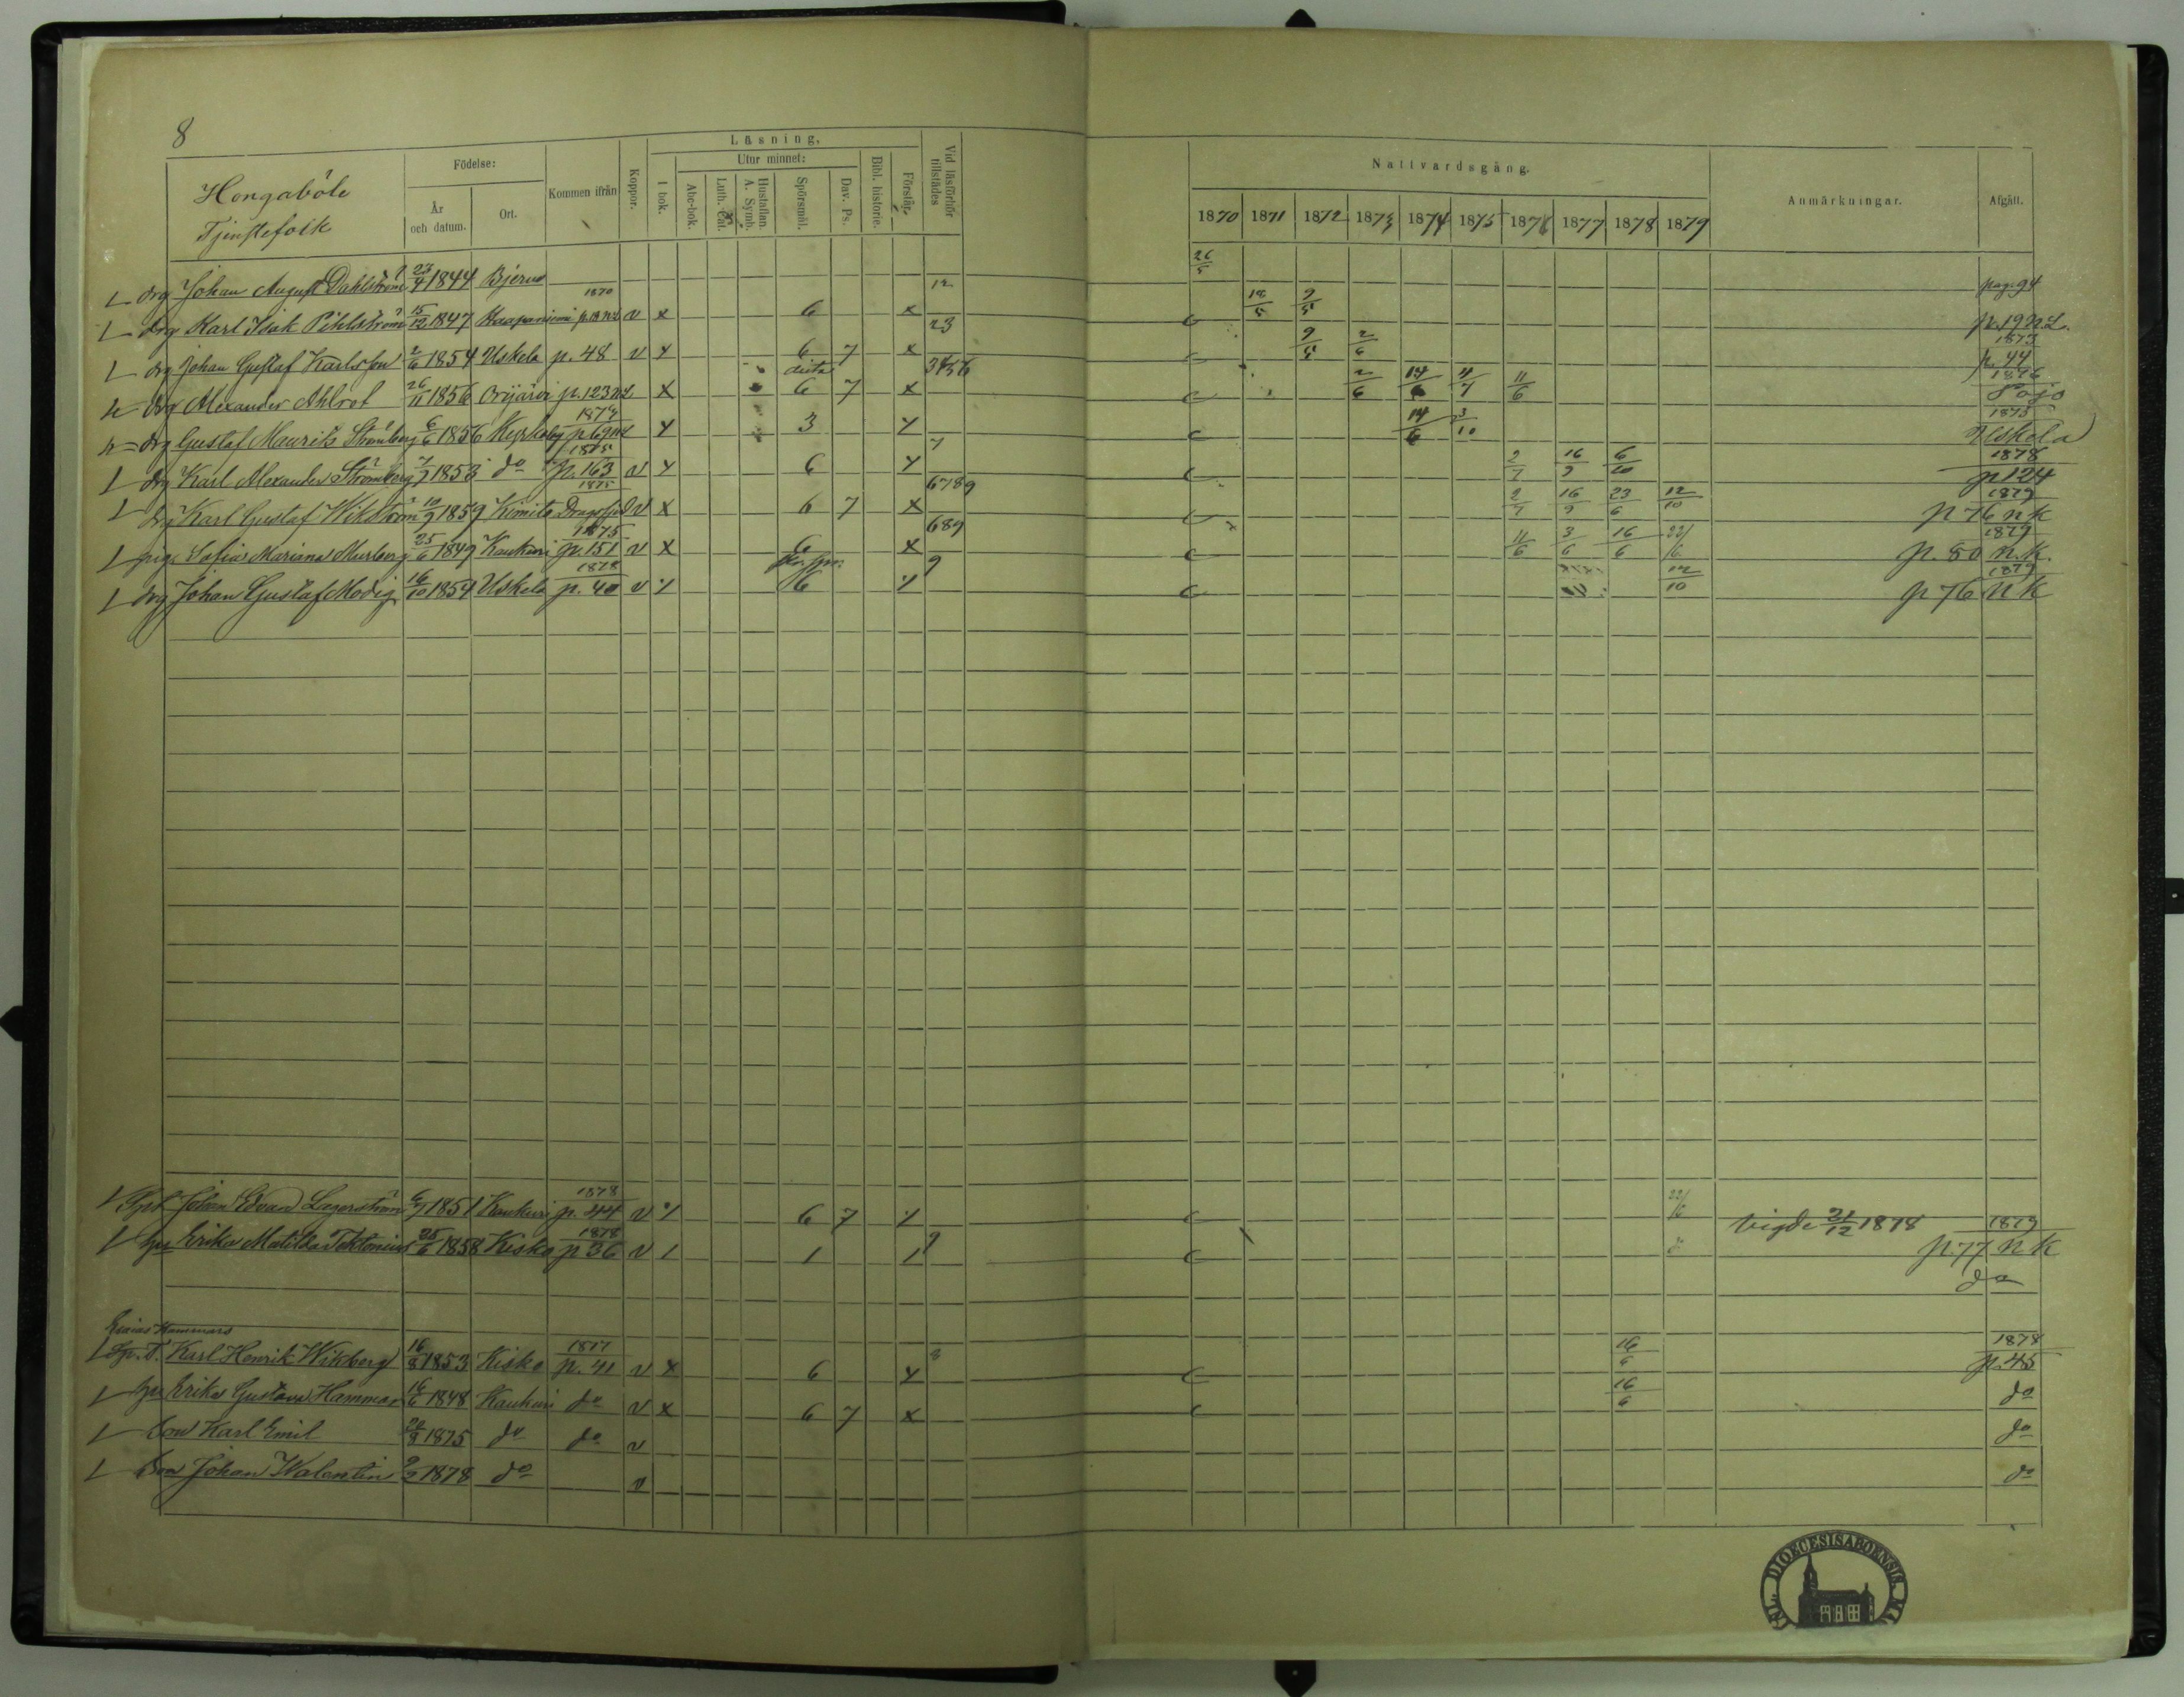 8
Hongaböle
Tjenstefolk
Födelse:
År och datum.
Ort.
Kommen ifrån
Koppor.
Läsning,
I bok.
Utur minnet:
Abc-bok.
Luth. Cat.
Hustaflan. A. Symb.
Spörsmål.
Dav. Ps.
Bibl. historie.
Förstår.
Vid läsförhör tillstädes
Nattvardsgång.
1870 1871 1872 1873 1874 1875 1876 1877 1878 1879
Anmärkningar.
Afgått.
drg Johan August Dahlström 23/4 1844 Bjerno 12 26/5 pag. 94
drg Karl Isak Pihlström 15/12 1847 Haapaniemi 1870 v x 6 x 23 c 12/5 9/5 p. 19 n.L.
drg Johan Gustaf Karlsson 2/6 1854 Uskela p. 48 v x 6 7 x 3456 c 9/5 2/6 1873 p. 44
drg Alexander Ahlrot 26/11 1856 Orijärvi p. 123 x 6 7 x c 2/6 14/6 11/7 11/6 1876 Pojo
drg Gustaf Maurits Strömberg 6/6 1856 Kyrkoby x 3 x 7 c 14/6 3/10 1875 Uskela
drg Karl Alexander Strömberg 7/7 1853 do 1875 p. 163 v x 6 x 6789 c 2/7 16/9 6/10 1878 p 124
drg Karl Gustaf Wikström 10/9 1859 Kimito 1875 Dragsfjerd v x 6 7 x 689 2/7 16/9 23/6 12/10 1879 p 76 n k
pig. Sofia Mariana Murberg 25/6 1849 Kaukuri 1875 p. 151 v x 6 x 9 c 11/6 3/6 16/6 22/6 1879 p. 80 n.k.
drg Johan Gustaf Modig 16/10 1854 Uskela 1878 p. 40 v 6 c 12/10 1879 p 76 n k
Johan Edvard Lagerström 6/7 1851 Kaukuri 1878 p. 44 v 6 7 c 22/6 Vigde 21/12 1878 1879 p. 77 n k
Erika Matilda Tektonius 25/6 1858 Kisko 1878 p 36 v 1 1 1 9 c do
Esaias Hammars
Karl Henrik Wikberg 16/8 1853 Kisko 1877 p. 41 v x 6 x 8 c 16/6 1878 p. 45
Erika Gustava Hammar 16/6 1848 Kaukuri do v x 6 7 x c 16/6 do
Son Karl Emil 1875 do do v do
Son Johan Walentin 9/2 1878 do v do
DIOECESIS ABOENSIS